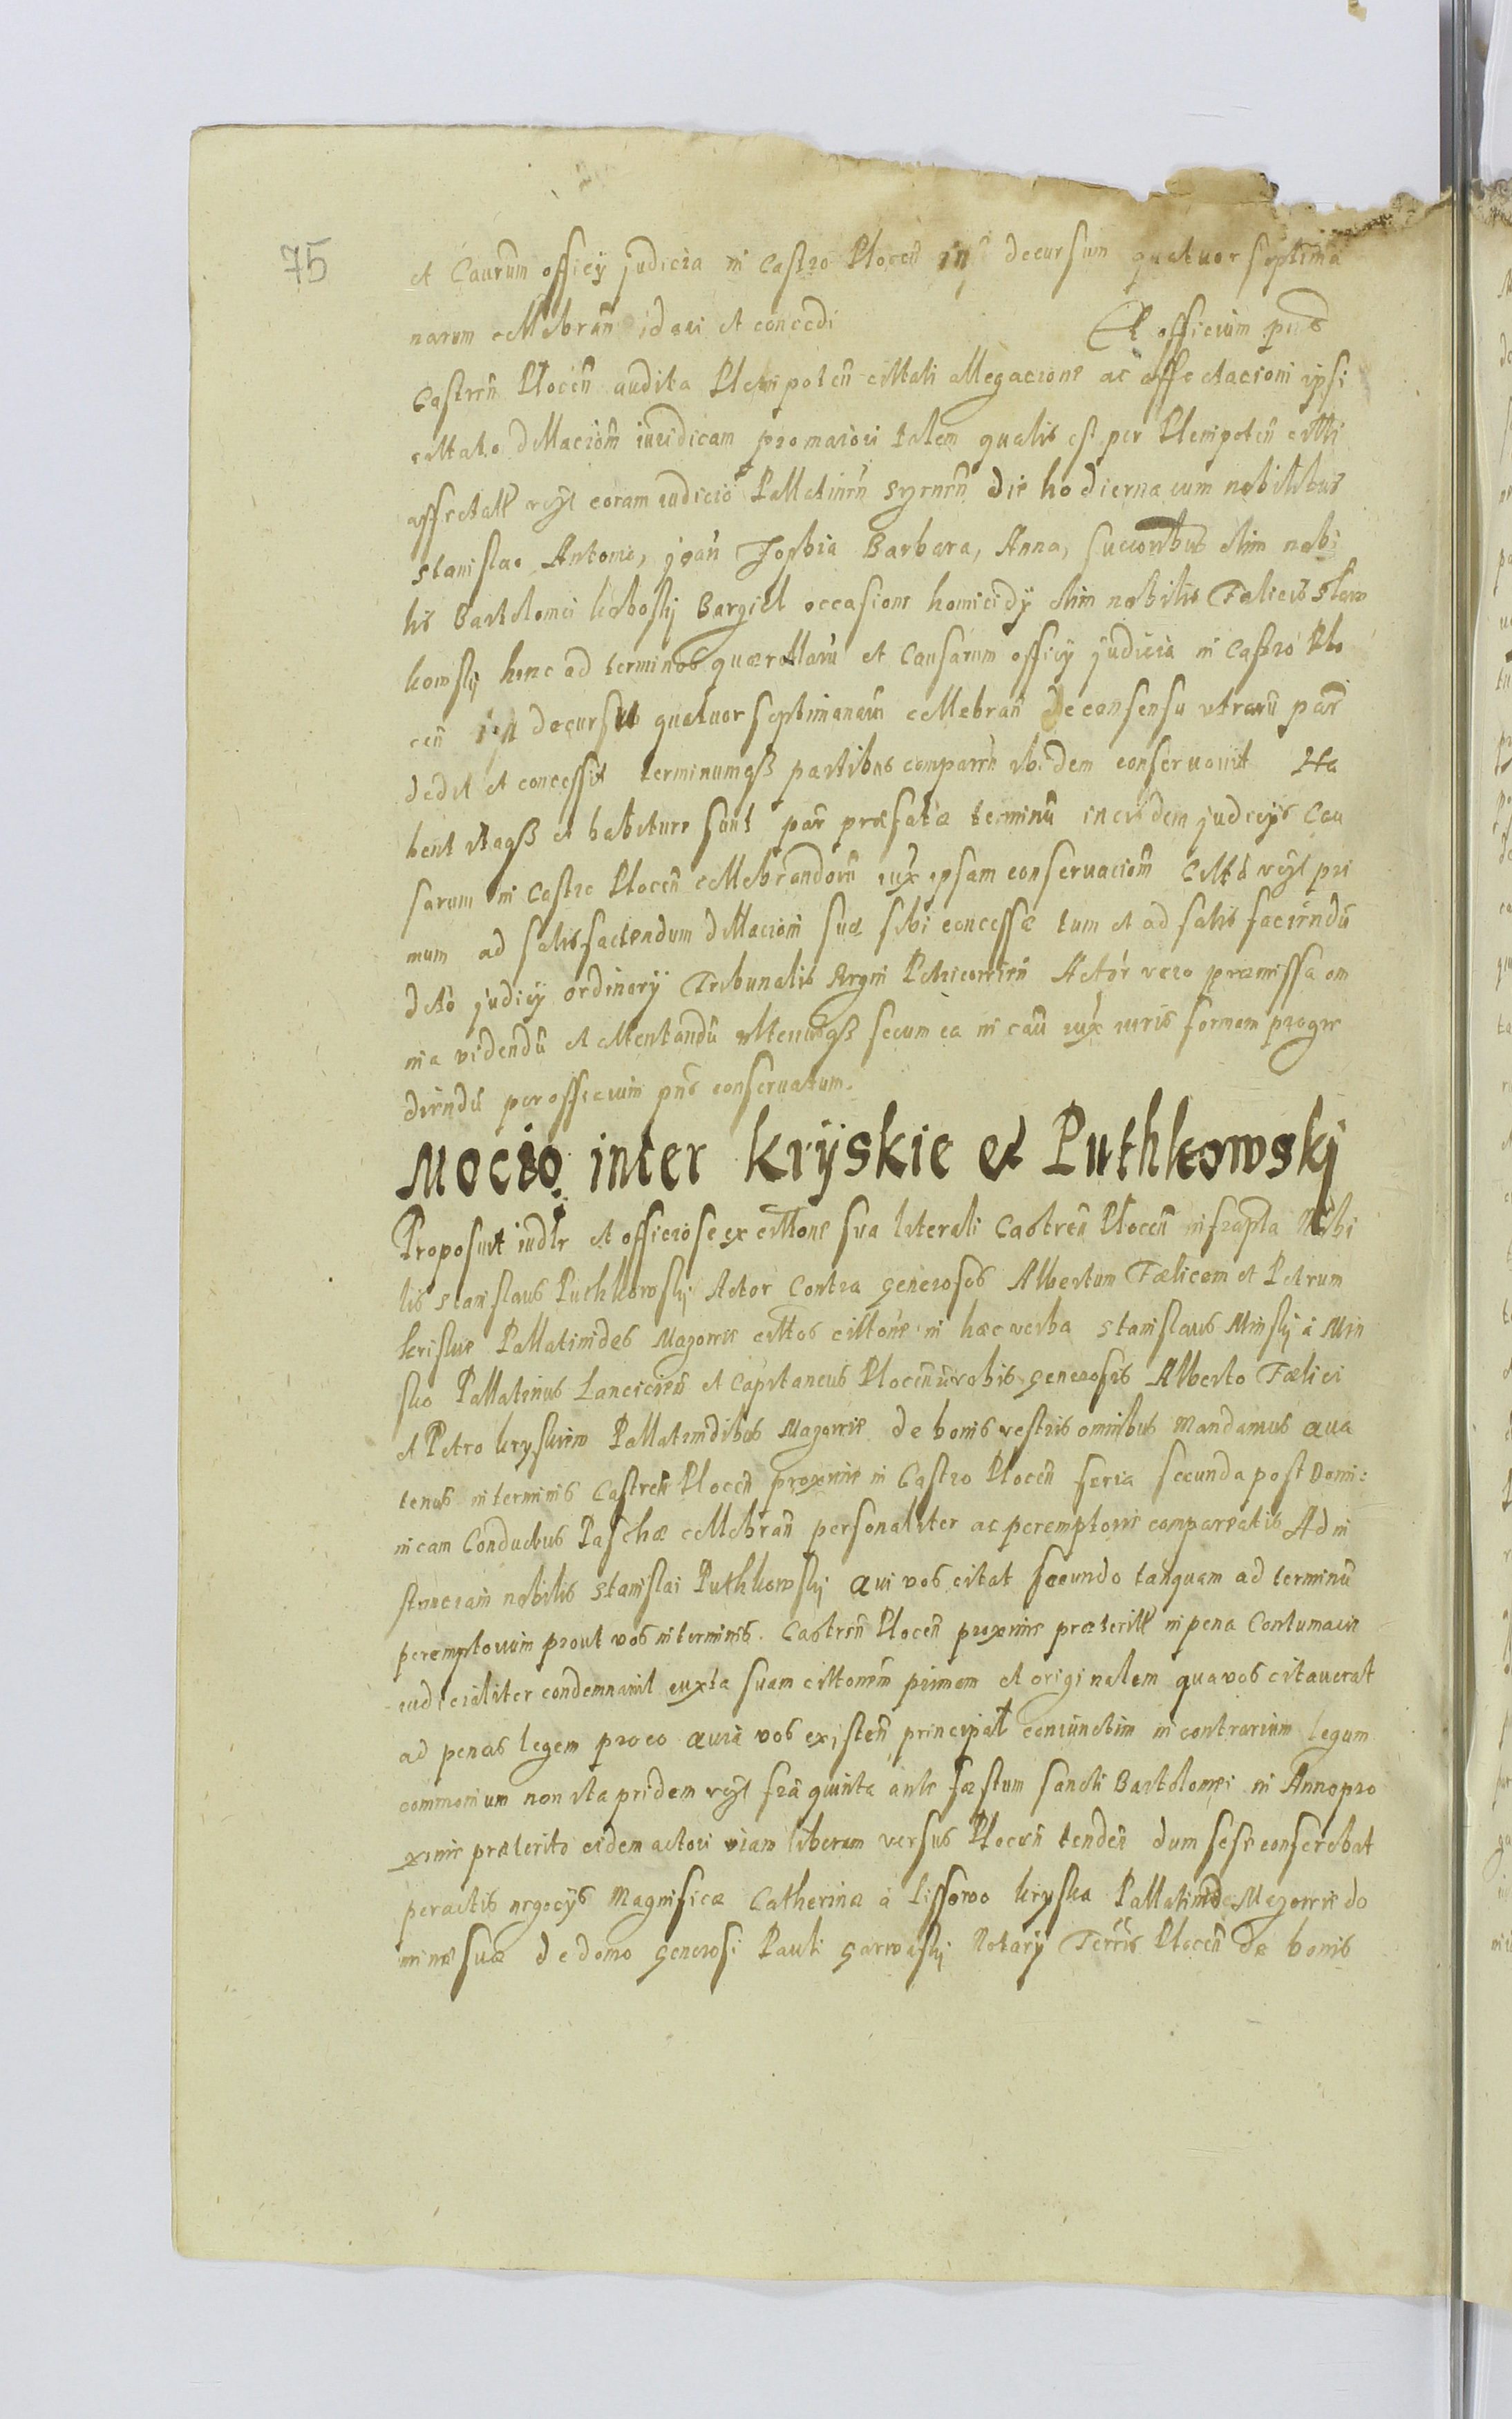 75
et Caurum officÿ judicia in Castro Plocen̄ in decursum quatuor septima
narum cellebran̄ dari et concedi Et officium pn̄s
Castren̄ Plocen̄ audita Plenipoten̄ cittati allegacione ac affectacioni ipsi
cittato dillaciom̄ iuridicam pro maiori talem qualis est per Plenipoten̄ citti
affectat̄ vcÿt coram iudicio Pallatinen̄ Syrnen̄ die hodierna cum nobilibus
Stanislao Antonio, joan̄ Zophia Barbara, Anna, succoribus olim nobi
lis Bartolomei koboskÿ Bargiel occasione homicidÿ olim nobilis Fœlicis Slaw
kowskÿ hinc ad terminos quærellarū et Causarum officÿ judicia in Castro Plo
cen̄ in decursu quatuor septimanarū cellebran̄ de consensu utrarū par̄
dedit et concessit terminumqß partibus comparen̄ ibidem conservavit Ha
bent itaqß et habiture sunt par̄ præfatæ terminū in eisdem judicÿs Cau
sarum in Castro Plocen̄ cellebrandorū iux̄ ipsam conservaciom̄ Citt̄o vcÿt pri
mum ad satisfaciendum dillacioni suæ sibi concessæ tum et ad satis faciendū
dcto judicÿ ordinarÿ Tribunalis Regni Petricovien̄ Actor vero præmissa om
nia videndū et attentandū ulteriusqß secum ea in cau iux̄ iuris formam progre
diendū per officium pn̄s conservatum.
Mocio inter krÿskie et Puthkowskj
Proposuit iudlr et officiose ex cittone sua literali Castren̄ Plocen̄ infrapta Nobi
lis Stanislaus Puthkowskÿ Actor Contra generosos Albertum Fœlicem et Petrum
kriskie Pallatinides Mazovie cittos cittone in hæc verba Stanislaus Minskÿ à Min
sko Pallatinus Lancicien̄ et Capitaneus Plocen̄ vobis generosis Alberto Fœlici
et Petro kryskiem Pallatinidibus Mazovie de bonis vestris omnibus Mandamus qua
tenus in terminis Castren̄ Plocen̄ proxime in Castro Plocen̄ feria secunda post Domi:
nicam Conductus Paschæ cellebran̄ personaliter ac peremptorie compareatis Ad in
stanciam nobilis Stanislai Puthkowskÿ qui vos citat secundo tanquam ad terminū
peremptorium prout vos in terminis Castren̄ Plocen̄ proxime præterit̄ in pena Contumacie
iudicialiter condemnavit iuxta suam cittonem primam et originalem qua vos citaverat
ad penas legem pro eo quia vos existen̄ principal coniunctim in contrarium legum
communium non ita pridem vcÿt fria quinta ante fæstum Sancti Bartolomei in Anno pro
xime præterito eidem actori viam liberam versus Plocen̄ tenden̄ dum sese conferebat
peractis negocÿs Magnificæ Catherina à Lissowo kryska Pallatinide Mazovie do
minæ suæ de domo generosi Pauli garwaskÿ Notarÿ Terris Plocen̄ de bonis